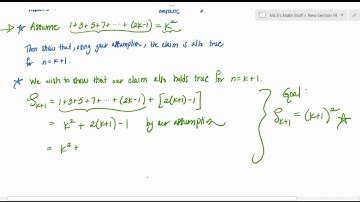 Ms E's Math Stuff > New Section 14
* Assume 1+3+5+7+ ··· +(2k-1) = k²
Then show that, using your assumption, the claim is also true
for n=k+1.
* We wish to show that our claim also holds true for n=k+1.
S_{k+1} = 1+3+5+7+ ··· +(2k-1) + [2(k+1)-1]
= k² + 2(k+1)-1 by our assumption
= k² +
Goal:
S_{k+1} = (k+1)² *